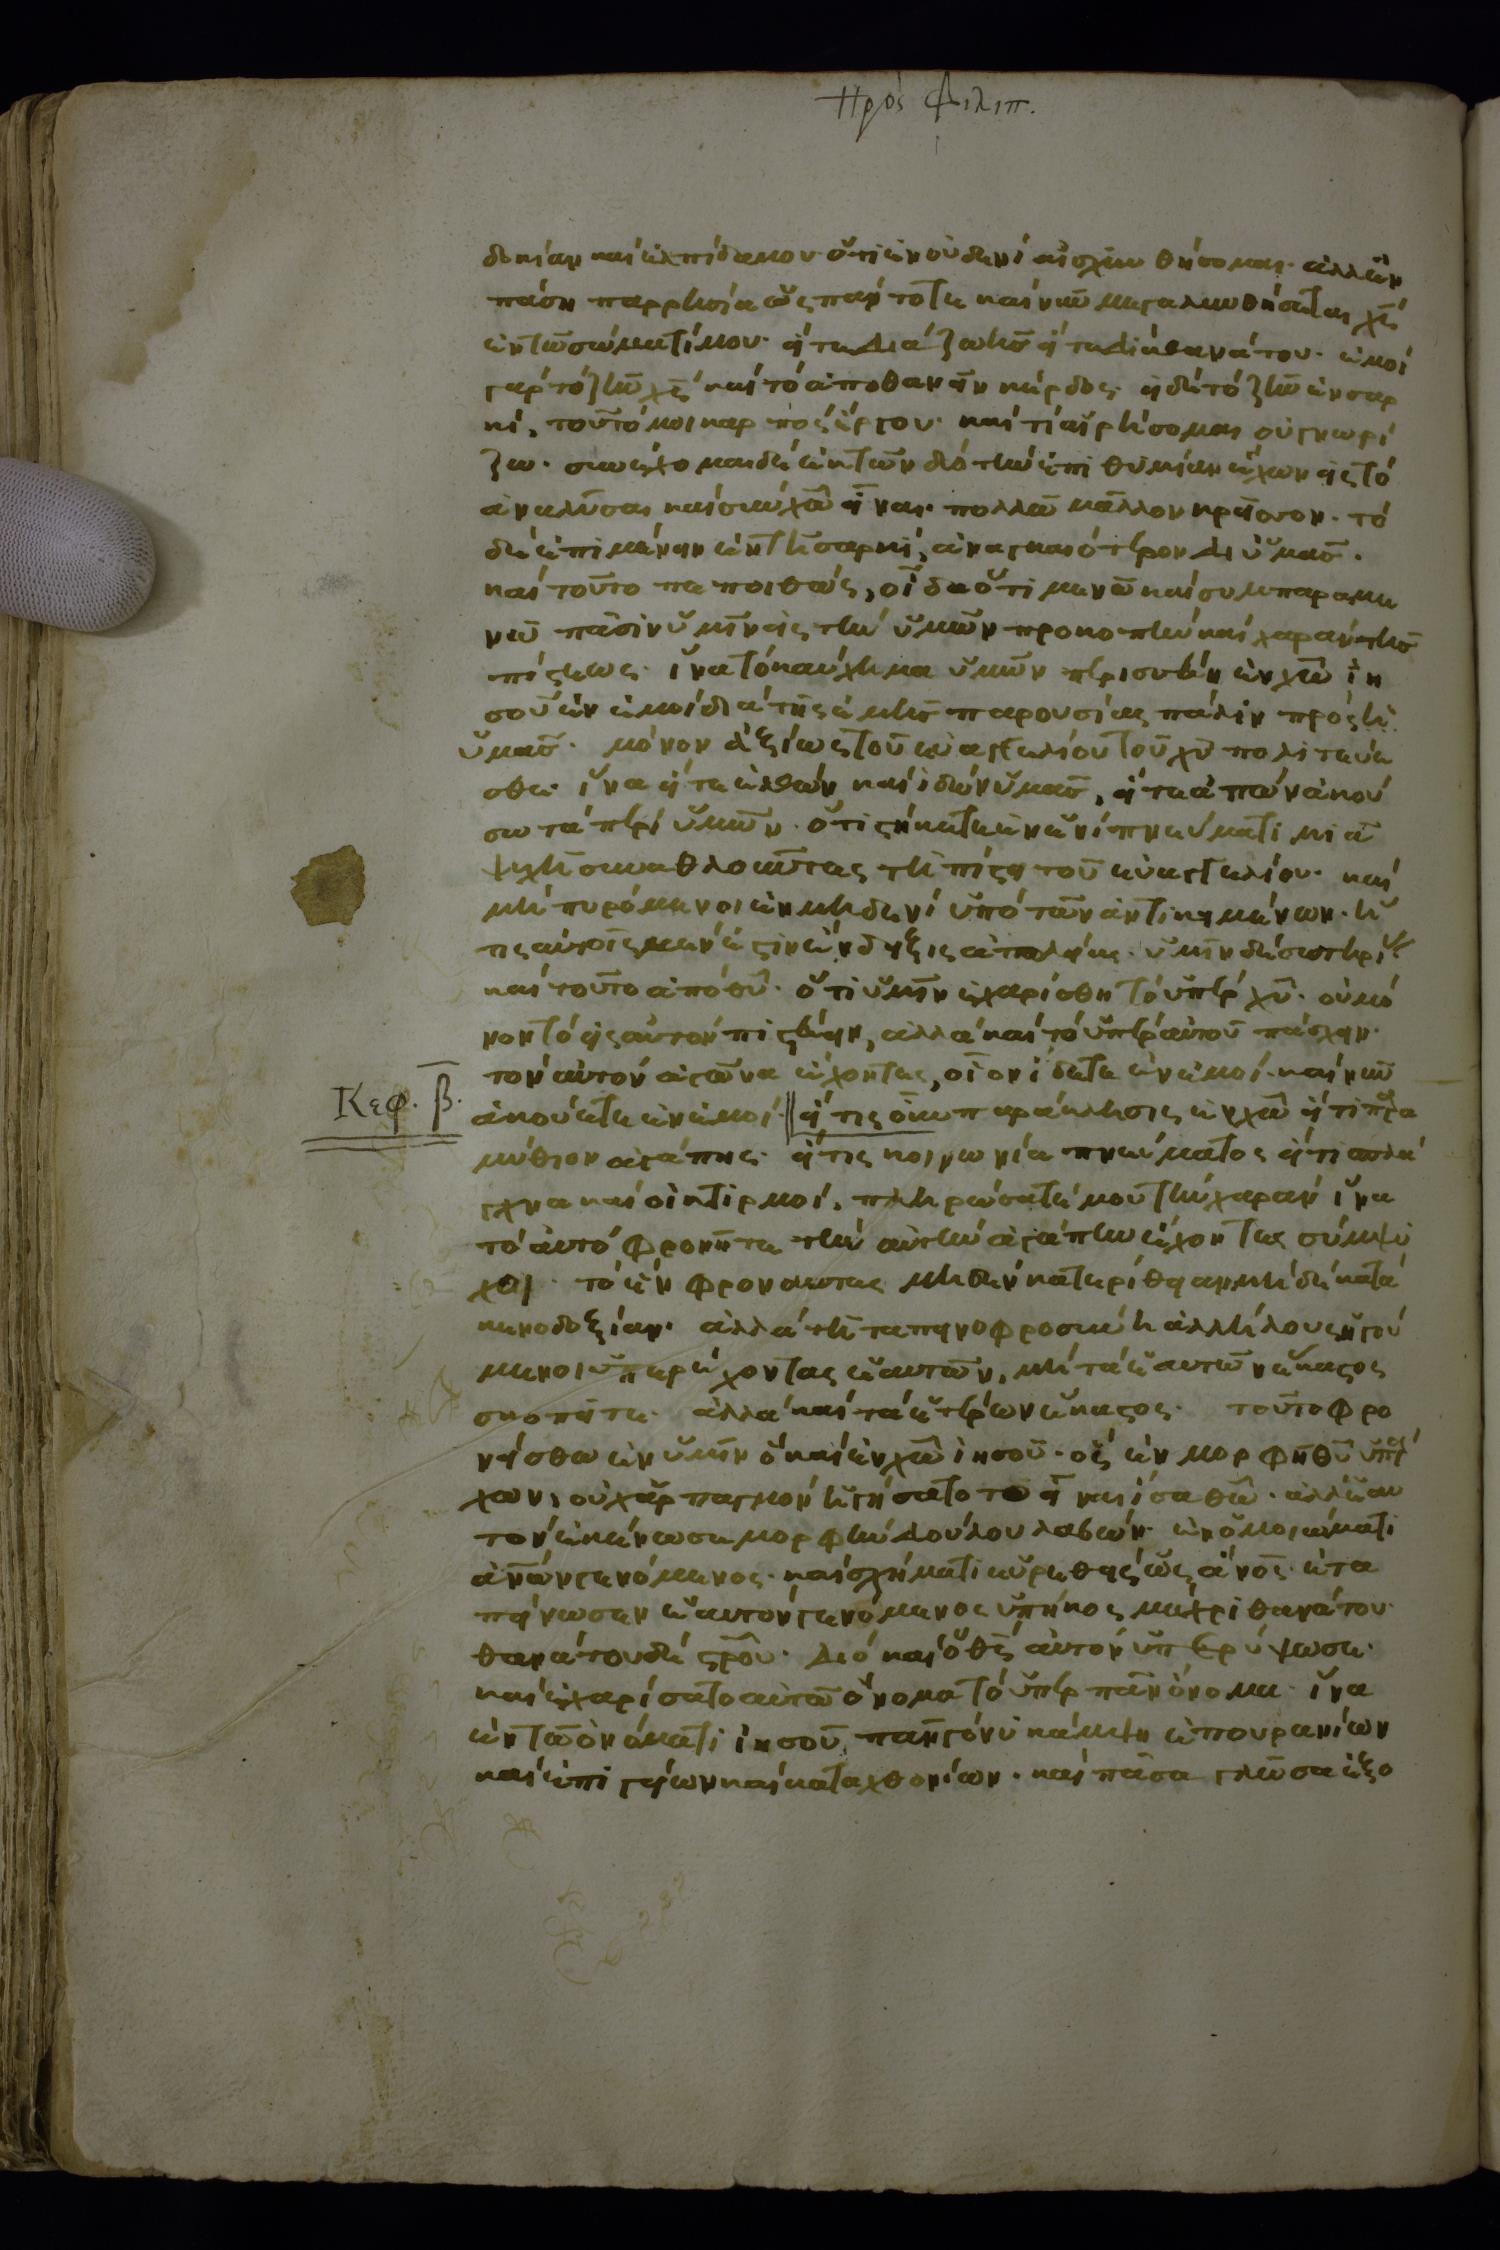 Πρὸς Φιλιπ.
δοκίαν καὶ ἐλπίδα μου· ὅτι ἐν οὐδενὶ αἰσχυνθήσομαι· ἀλλ' ἐν
πάση παρρησία ὡς πάντοτε καὶ νῦν μεγαλυνθήσεται χς
ἐν τῶ σώματί μου· εἴτε διὰ ζωῆς εἴτε διὰ θανάτου· ἐμοὶ
γὰρ τὸ ζῆν χς καὶ τὸ ἀποθανεῖν κέρδος· εἰ δὲ τὸ ζῆν ἐν σαρ
κὶ, τοῦτό μοι καρπὸς ἔργου· καὶ τί αἱρήσομαι οὐ γνωρί
ζω· συνέχομαι δὲ ἐκ τῶν δύο τὴν ἐπιθυμίαν ἔχων εἰς τὸ
ἀναλῦσαι καὶ σὺν χῶ εἶναι· πολλῶ μᾶλλον κρεῖσσον· τὸ
δὲ ἐπιμένειν ἐν τῆ σαρκὶ, ἀναγκαιότερον δι ὑμᾶς.
καὶ τοῦτο πεποιθὼς, οἶδα ὅτι μενῶ καὶ συμπαραμε
νῶ πᾶσιν ὑμῖν εἰς τὴν ὑμῶν προκοπὴν καὶ χαρὰν τῆς
πίστεως· ἵνα τὸ καύχημα ὑμῶν περισσεύη ἐν χῶ ἰη
σοῦ ἐν ἐμοὶ διὰ τῆς ἐμῆς παρουσίας πάλιν πρὸς
ὑμᾶς· μόνον ἀξίως τοῦ εὐαγγελίου τοῦ χυ πολιτεύε
σθε· ἵνα εἴτε ἐλθὼν καὶ ἰδὼν ὑμᾶς, εἴτε ἀπὼν ἀκού
σω τὰ περὶ ὑμῶν· ὅτι στήκετε ἐν ἑνὶ πνεύματι μιᾶ
ψυχῆ συναθλοῦντες τῆ πίστει τοῦ εὐαγγελίου· καὶ
μὴ πτυρόμενοι ἐν μηδενὶ ὑπὸ τῶν ἀντικειμένων· ἥ
τις αὐτοῖς μέν ἐστιν ἔνδειξις ἀπωλείας· ὑμῖν δὲ σωτηρί
καὶ τοῦτο ἀπὸ θυ· ὅτι ὑμῖν ἐχαρίσθη τὸ ὑπὲρ χυ· οὐ μό
νον τὸ εἰς αὐτὸν πιστεύειν, ἀλλὰ καὶ τὸ ὑπὲρ αὐτοῦ πάσχειν·
τὸν αὐτὸν ἀγῶνα ἔχοντες, οἷον ἴδετε ἐν ἐμοὶ· καὶ νῦν
Κεφ. β.
ἀκούετε ἐν ἐμοί· εἴ τις οὖν παράκλησις ἐν χῶ εἴ τι παρα
μύθιον ἀγάπης· εἴ τις κοινωνία πνεύματος εἴ τι σπλά
γχνα καὶ οἰκτιρμοί, πληρώσατέ μου τὴν χαρὰν ἵνα
τὸ αὐτὸ φρονῆτε τὴν αὐτὴν ἀγάπην ἔχοντες σύμψυ
χοι· τὸ ἓν φρονοῦντες μηδὲν κατ' ἐρίθειαν μηδὲ κατὰ
κενοδοξίαν· ἀλλὰ τῆ ταπεινοφροσύνη ἀλλήλους ἡγού
μενοι ὑπερέχοντας ἑαυτῶν, μὴ τὰ ἑαυτῶν ἕκαστος
σκοπεῖτε· ἀλλὰ καὶ τὰ ἑτέρων ἕκαστος· τοῦτο φρο
νείσθω ἐν ὑμῖν ὃ καὶ ἐν χῶ ἰησοῦ· ὃς ἐν μορφῆ θυ ὑπάρ
χων, οὐχ ἁρπαγμὸν ἡγήσατο τὸ εἶναι ἴσα θῶ· ἀλλ' ἑαυ
τὸν ἐκένωσε μορφὴν δούλου λαβών· ἐν ὁμοιώματι
ἀνων γενόμενος· καὶ σχήματι εὑρεθεὶς ὡς ἄνος· ἐτα
πείνωσεν ἑαυτὸν γενόμενος ὑπήκοος μέχρι θανάτου·
θανάτου δὲ στρου· διὸ καὶ ὁ θς αὐτὸν ὑπερύψωσε·
καὶ ἐχαρίσατο αὐτῶ ὄνομα τὸ ὑπὲρ πᾶν ὄνομα· ἵνα
ἐν τῶ ὀνόματι ἰησοῦ πᾶν γόνυ κάμψη ἐπουρανίων
καὶ ἐπιγείων καὶ καταχθονίων· καὶ πᾶσα γλῶσσα ἐξο